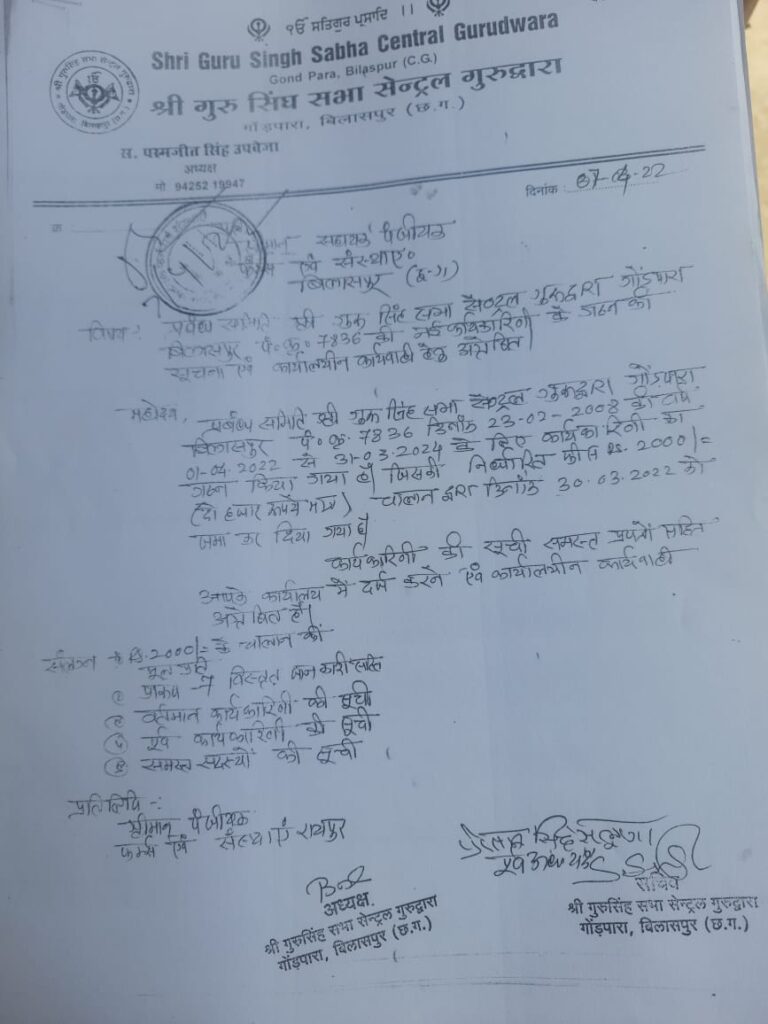 ੴ ਸਤਿਗੁਰ ਪ੍ਰਸਾਦਿ ।।
Shri Guru Singh Sabha Central Gurudwara
Gond Para, Bilaspur (C.G.)
श्री गुरु सिंघ सभा सेन्ट्रल गुरुद्वारा
गोंड़पारा, बिलासपुर (छ.ग.)
स. परमजीत सिंह उपवेजा
अध्यक्ष
मो. 94252 19947
दिनांक : 07-04-22
क्र
सहायक पंजीयक
फर्म्स एवं संस्थाएं
बिलासपुर (छ.ग)
विषय : प्रबंध समिति श्री गुरु सिंह सभा सेन्ट्रल गुरुद्वारा गोंड़पारा
बिलासपुर पं॰ कृ॰ 7836 की नई कार्यकारिणी के गठन की
सूचना एवं कार्यालयीन कार्यवाही हेतु अपेक्षित।
महोदय, प्रबंध समिति श्री गुरु सिंह सभा सेन्ट्रल गुरुद्वारा गोंड़पारा
बिलासपुर पं॰ कृ॰ 7836 दिनांक 23-02-2008 की
01-04.2022 से 31-03.2024 के लिए कार्यकारिणी का
गठन किया गया है। जिसकी निर्धारित फीस Rs. 2000/=
(दो हजार रूपये मात्र) चालान द्वारा दिनांक 30.03.2022 को
जमा कर दिया गया है।
कार्यकारिणी की सूची समस्त प्रपत्रों सहित
आपके कार्यालय में दर्ज करने एवं कार्यालयीन कार्यवाही
अपेक्षित है।
संलग्न Rs. 2000/= के चालान की
मूल प्रति
प्रारूप विस्तृत जानकारी सहित
वर्तमान कार्यकारिणी की सूची
पूर्व कार्यकारिणी की सूची
समस्त सदस्यों की सूची
प्रतिलिपि -:
श्रीमान् पंजीयक
फर्म्स एवं संस्थाएं रायपुर
पूर्व अध्यक्ष
अध्यक्ष
श्री गुरुसिंह सभा सेन्ट्रल गुरुद्वारा
गोंड़पारा, बिलासपुर (छ.ग.)
सचिव
श्री गुरुसिंह सभा सेन्ट्रल गुरुद्वारा
गोंड़पारा, बिलासपुर (छ.ग.)